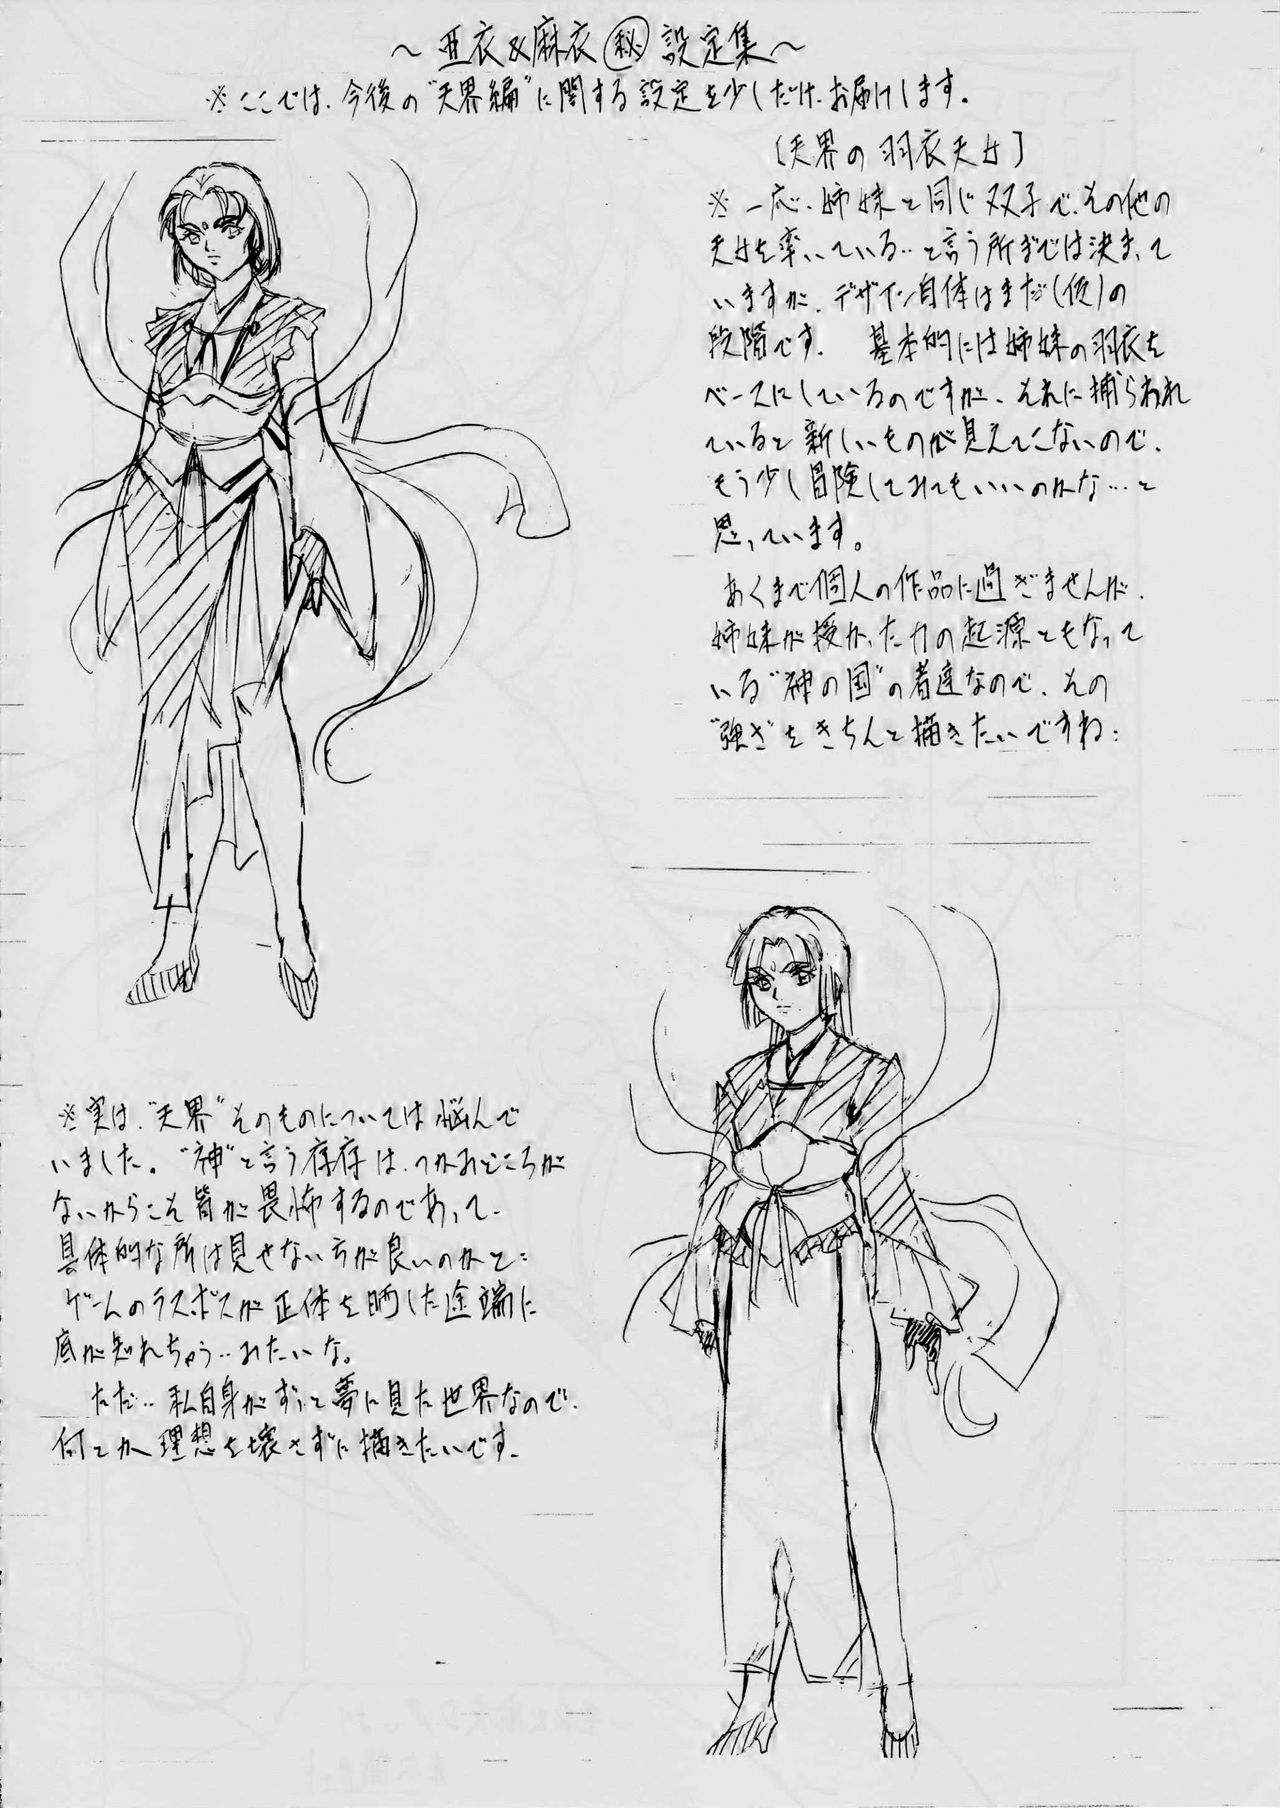 ～亜衣&麻衣㊙設定集～
※ここでは、今後の"天界編"に関する設定を少しだけ、お届けします。
〔天界の羽衣天女〕
※一応、姉妹と同じ双子で、その他の
天女を率いている‥と言う所までは決まって
いますが、デザイン自体はまだ(仮)の
段階です。　基本的には姉妹の羽衣を
ベースにしているのですが、それに捕らわれ
ていると新しいものが見えてこないので、
もう少し冒険してみてもいいのかな…と
思っています。
あくまで個人の作品に過ぎませんが、
姉妹が授かった力の起源ともなって
いる"神の国"の者達なので、その
"強さ"をきちんと描きたいですね‥
※実は、"天界"そのものについては悩んで
いました。"神"と言う存在は、つかみどころが
ないからこそ皆が畏怖するのであって、
具体的な所は見せない方が良いのかと‥
ゲームのラスボスが正体を晒した途端に
底が知れちゃう‥みたいな。
ただ‥私自身がずっと夢に見た世界なので、
何とか理想を壊さずに描きたいです。